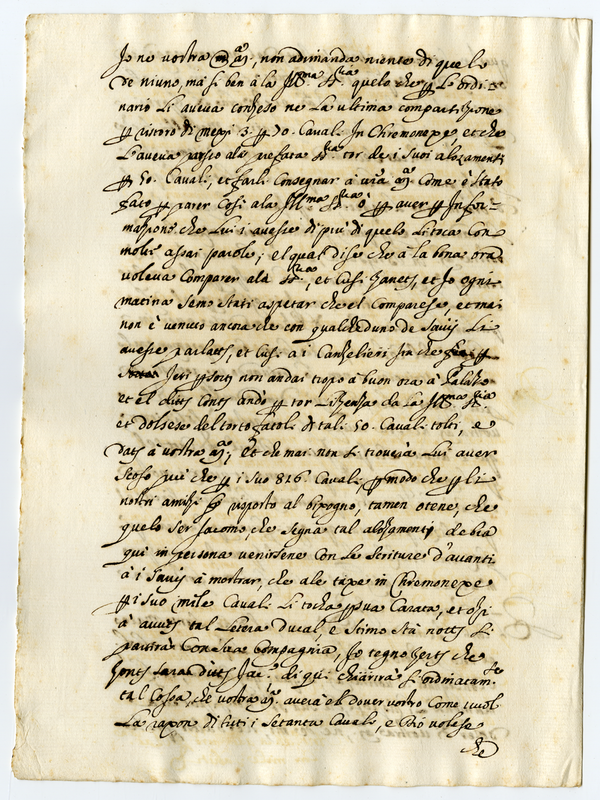 Io no vostra m.a, non adimanda niente di quel
de niuno, ma si ben à la Ill.ma S.ria quelo che p L'ordi-
nario li aveva conzeso ne La ultima compartizone
p ristoro di mexi 3. p 70. Cavali In Chremonexe et che
L'aveva preso ala prefata S.ria tor de i suoi alozamenti
p 50. Cavali, et farli consegnar à v.ra m. Come è stato
fato p parer Cosi ala Ill.ma S.ria ò p aver p Infor-
mazione che Lui i avesse di più di quelo li toca Con
molte assai parole; el qual dise che à la bona ora
voleva Comparer ala S.ria, et Cusi zanets, et Io ogni
matina semo stati aspetar che el Comparese, et mai
non è venuto ancora che con qualcheduno de Savij Li
avesse parlato, et Cusi à i Canzelieri
Ieri non andai tropo à buon ora à Palazo
et el ditto Conte andò p tor Lizenza da La Ill.ma S.ria
et dolsese del torto fatoli di tali 50. Cavali tolti, e
dati à vostra m.; et che mai non si troverà Lui aver
scoso più che p i suo 816. Cavali p modo che p li
nostri amizi fo risposto al bixogno, tamen otene, che
quelo ser Jacomo, che segna tal alozamenti debia
qui in persona venirsene con le scriture d'avanti
à i Savij à mostrar, che ale taxe in Chremonexe
p i suo mile Cavali li tocha p sua Carata, et ozi
à avuto tal Letera ducal, e stimo sta notte si
partirà Con sua Compagnia, Io tegno zerto che
zonto sarà ditto Jac.o di qui chiarirà si ordinatam.te
tal Cossa, che vostra m. averà el dover vostro Come vuol
La raxon di tuti i setanta Cavali, e Dio volese
che